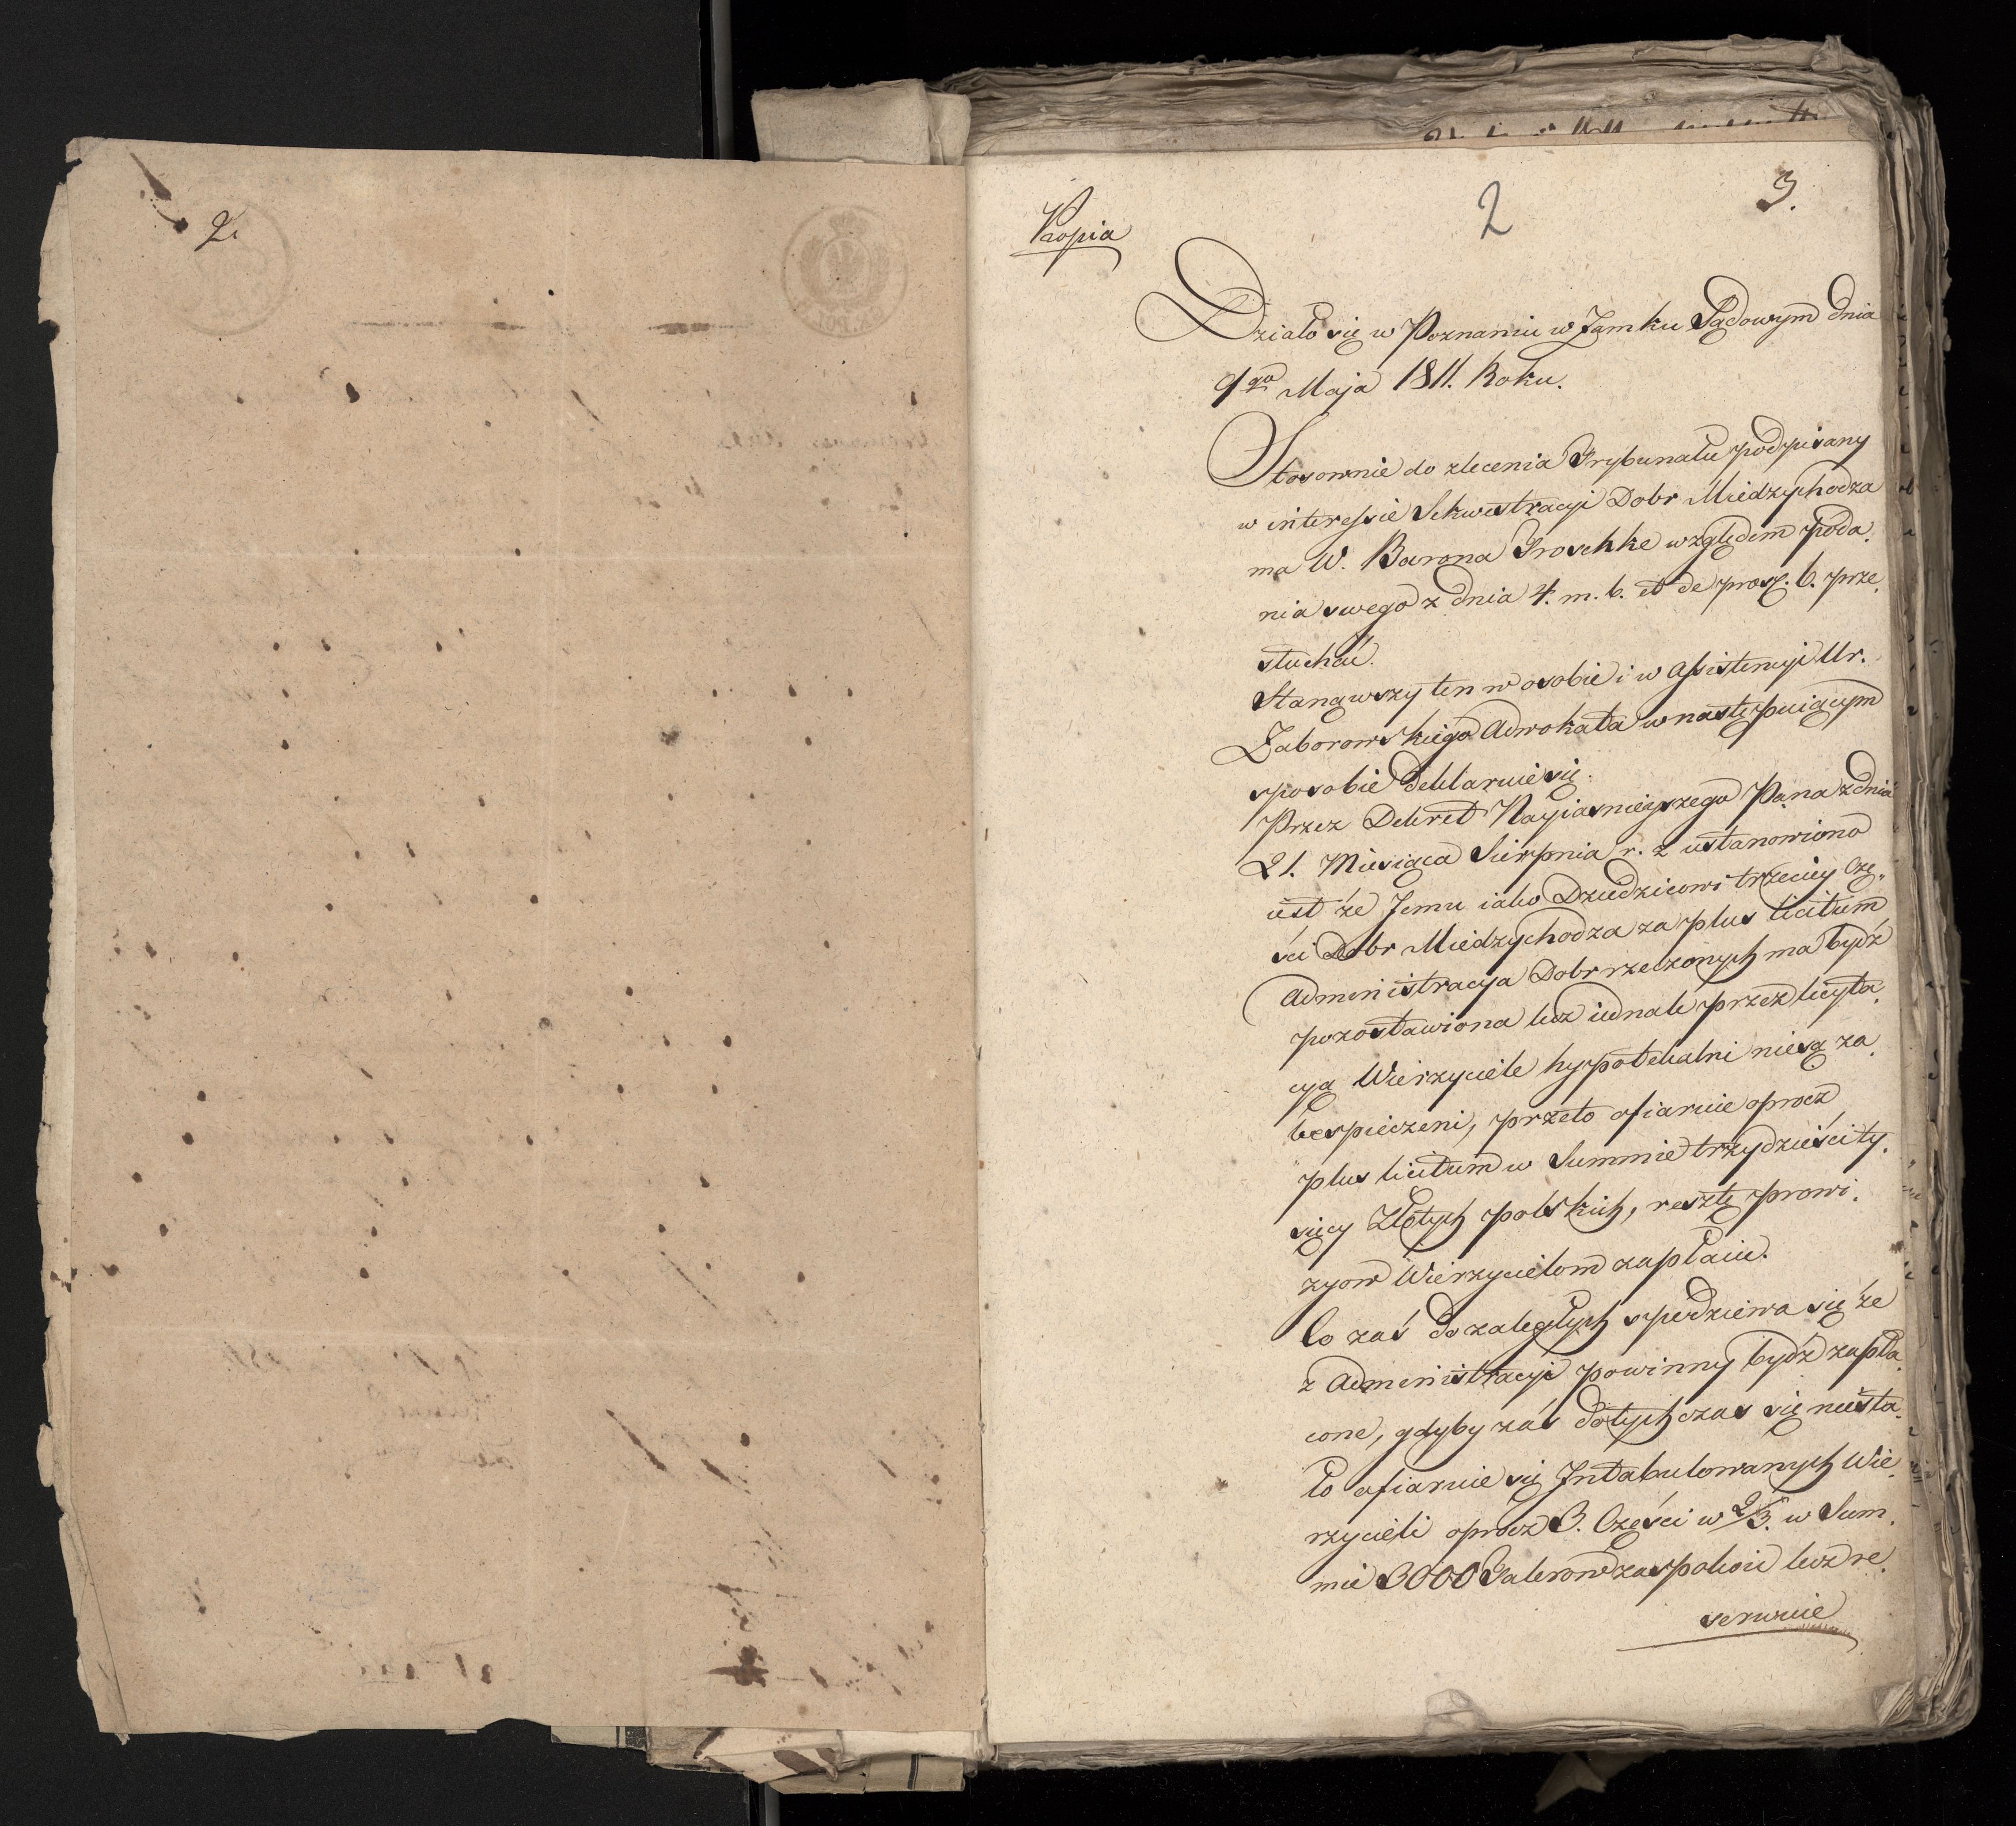 2.
Kopia
2
3.
Działo się w Poznaniu w Zamku Sądowym dnia
9go Maja 1811. Roku.
Stosownie do zlecenia Trybunału podpisany
w interessie Sekwestracyi Dobr Międzychodza
ma W. Barona Troschke względem poda,
nia swego z dnia 4. m. b. et de pras. 6. prze,
słuchać.
Stanąwszy ten w osobie i w assistencyi Ur.
Zaborowskiego Adwokata w następuiącym
sposobie deklaruie się.
Przez Dekret Nayiasnieyszego Pana z dnia
21. Miesiąca Sierpnia r. z ustanowiono
iest że Jemu iako Dziedzicowi trzeciey Czę,
ści Dobr Miedzychodza za plus licitum
Administracya Dobr rzeczonych ma bydź
pozostawiona lecz iednak przez licyta,
cyą Wierzyciele hypotekalni niesą za,
bespieczeni, przeto ofiaruie oprocz
plus licitum w Summie trzydzieści ty,
sięcy Złotych polskich, resztę prowi,
zyow Wierzycielom zapłacić.
Co zaś do zaległych spodziewa się że
z Administracyi powinny bydź zapła,
cone, gdyby zaś dotychczas się niesta,
ło ofiaruie się Intabulowanych Wie,
rzycieli oprocz 3. Części w 2/3. w Sum,
mie 3000 Talerow zaspokoić lecz re,
serwuie